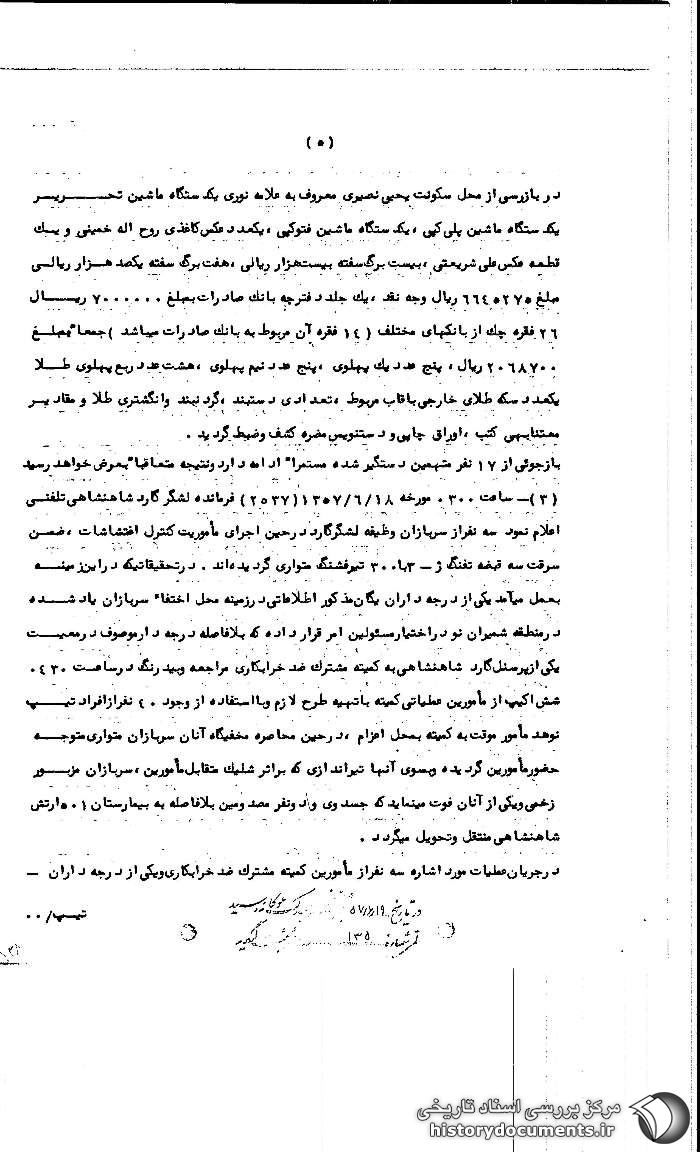 ( ۵ )
در بازرسی از محل سکونت یحیی نصیری معروف به علامه نوری یکدستگاه ماشین تحـــــریـــر
یکدستگاه ماشین پلی کپی ، یکدستگاه ماشین فتوکپی ، یکعدد عکس کاغذی روح اله خمینی و یـک
قطعه عکس علی شریعتی ، بیست برگ سفته بیست هزار ریالی ، هفت برگ سفته یکصد هـــزار ریالـــی
مبلغ ۶۶۴۵۲۷۵ ریال وجه نقد ، یک جلد دفترچه بانک صادرات بمبلغ ۷۰۰۰۰۰۰ ریـــــال
۲۶ فقره چک از بانکهای مختلف ( ۱۴ فقره آن مربوط به بانک صادرات میباشد ) جمعا" بمبلـــغ
۲۰۶۸۷۰۰ ریال ، پنج عدد یک پهلوی ، پنج عدد نیم پهلوی ، هشت عدد ربع پهلوی طـــلا
یکعدد سکه طلای خارجی باقاب مربوط ، تعدادی دستبند ، گردنبند وانگشتری طلا و مقادیـــر
معتنابهی کتب ، اوراق چاپی و دستنویس مضره کشف وضبط گردید .
بازجوئی از ۱۷ نفر متهمین دستگیر شده مستمرا" ادامه دارد ونتیجه متعاقبا" بعرض خواهد رسید
(۳) ـ ساعت ۰۳۰۰ مورخه ۱۳۵۷/۶/۱۸ (۲۵۳۷) فرمانده لشگر گارد شاهنشاهی تلفنـــی
اعلام نمود سه نفر از سربازان وظیفه لشگر گارد در حین اجرای مأموریت کنترل اغتشاشات ، ضمـــن
سرقت سه قبضه تفنگ ژ ـ ۳ با ۳۰۰ تیر فشنگ متواری گردیده اند . در تحقیقاتیکه در این زمینـــه
بعمل میآمد یکی از درجه داران یگان مذکور اطلاعاتی در زمینه محل اختفاء سربازان یاد شـــده
در منطقه شمیران نو در اختیار مسئولین امر قرار داده که بلافاصله درجه دار موصوف در معیـــت
یکی از پرسنل گارد شاهنشاهی به کمیته مشترک ضد خرابکاری مراجعه وبیدرنگ در ساعت ۰۴۳۰
شش اکیپ از مأمورین عملیاتی کمیته باتهیه طرح لازم وبا استفاده از وجود ۴۰ نفر از افراد تیـــپ
نوهد مأمور موقت به کمیته بمحل اعزام ، در حین محاصره مخفیگاه آنان سربازان متواری متوجـــه
حضور مأمورین گردیده وبسوی آنها تیراندازی که براثر شلیک متقابل مأمورین ، سربازان مزبـــور
زخمی ویکی از آنان فوت مینماید که جسد وی و دونفر مصدومین بلافاصله به بیمارستان ۵۰۱ ارتش
شاهنشاهی منتقل وتحویل میگردد .
در جریان عملیات مورد اشاره سه نفر از مأمورین کمیته مشترک ضد خرابکاری ویکی از درجه داران ـ
تیـــپ/ ۰۰
در تاریخ
رسید
شماره ۱۳۵
مرکز بررسی اسناد تاریخی
historydocuments.ir